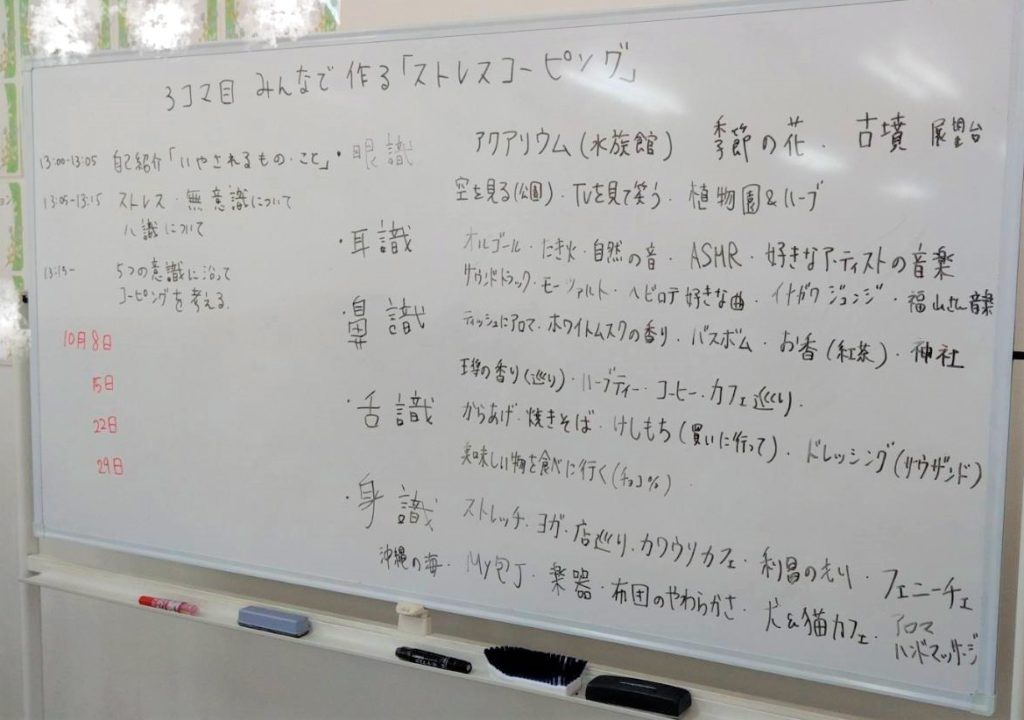 3コマ目 みんなで作る「ストレスコーピング」
13:00-13:05 自己紹介「いやされるもの・こと」
13:05-13:15 ストレス・無意識について
八識について
13:15- 5つの意識に沿って
コーピングを考える
10月8日
15日
22日
29日
・眼識 アクアリウム(水族館) 季節の花. 古墳 展望台
空を見る(公園)・TVを見て笑う. 植物園&ハーブ
・耳識 オルゴール・たき火・自然の音・ASMR・好きなアーティストの音楽
サウンドトラック・モーツァルト・ヘビロテ好きな曲・イナガワジュンジ・福山さん音楽
・鼻識 ティッシュにアロマ・ホワイトムスクの香り・バスボム・お香(紅茶)・神社
の香り(巡り)・ハーブティー・コーヒー・カフェ巡り.
・舌識 からあげ・焼きそば・けしもち(買いに行って)・ドレッシング(サウザンド)
美味しい物を食べに行く(チョコ%)
・身識 ストレッチ・ヨガ・店巡り・カワウソカフェ・利昌の・フェニーチェ
沖縄の海・My包丁・楽器・布団のやわらかさ・犬&猫カフェ・アロマ
ハンドマッサージ